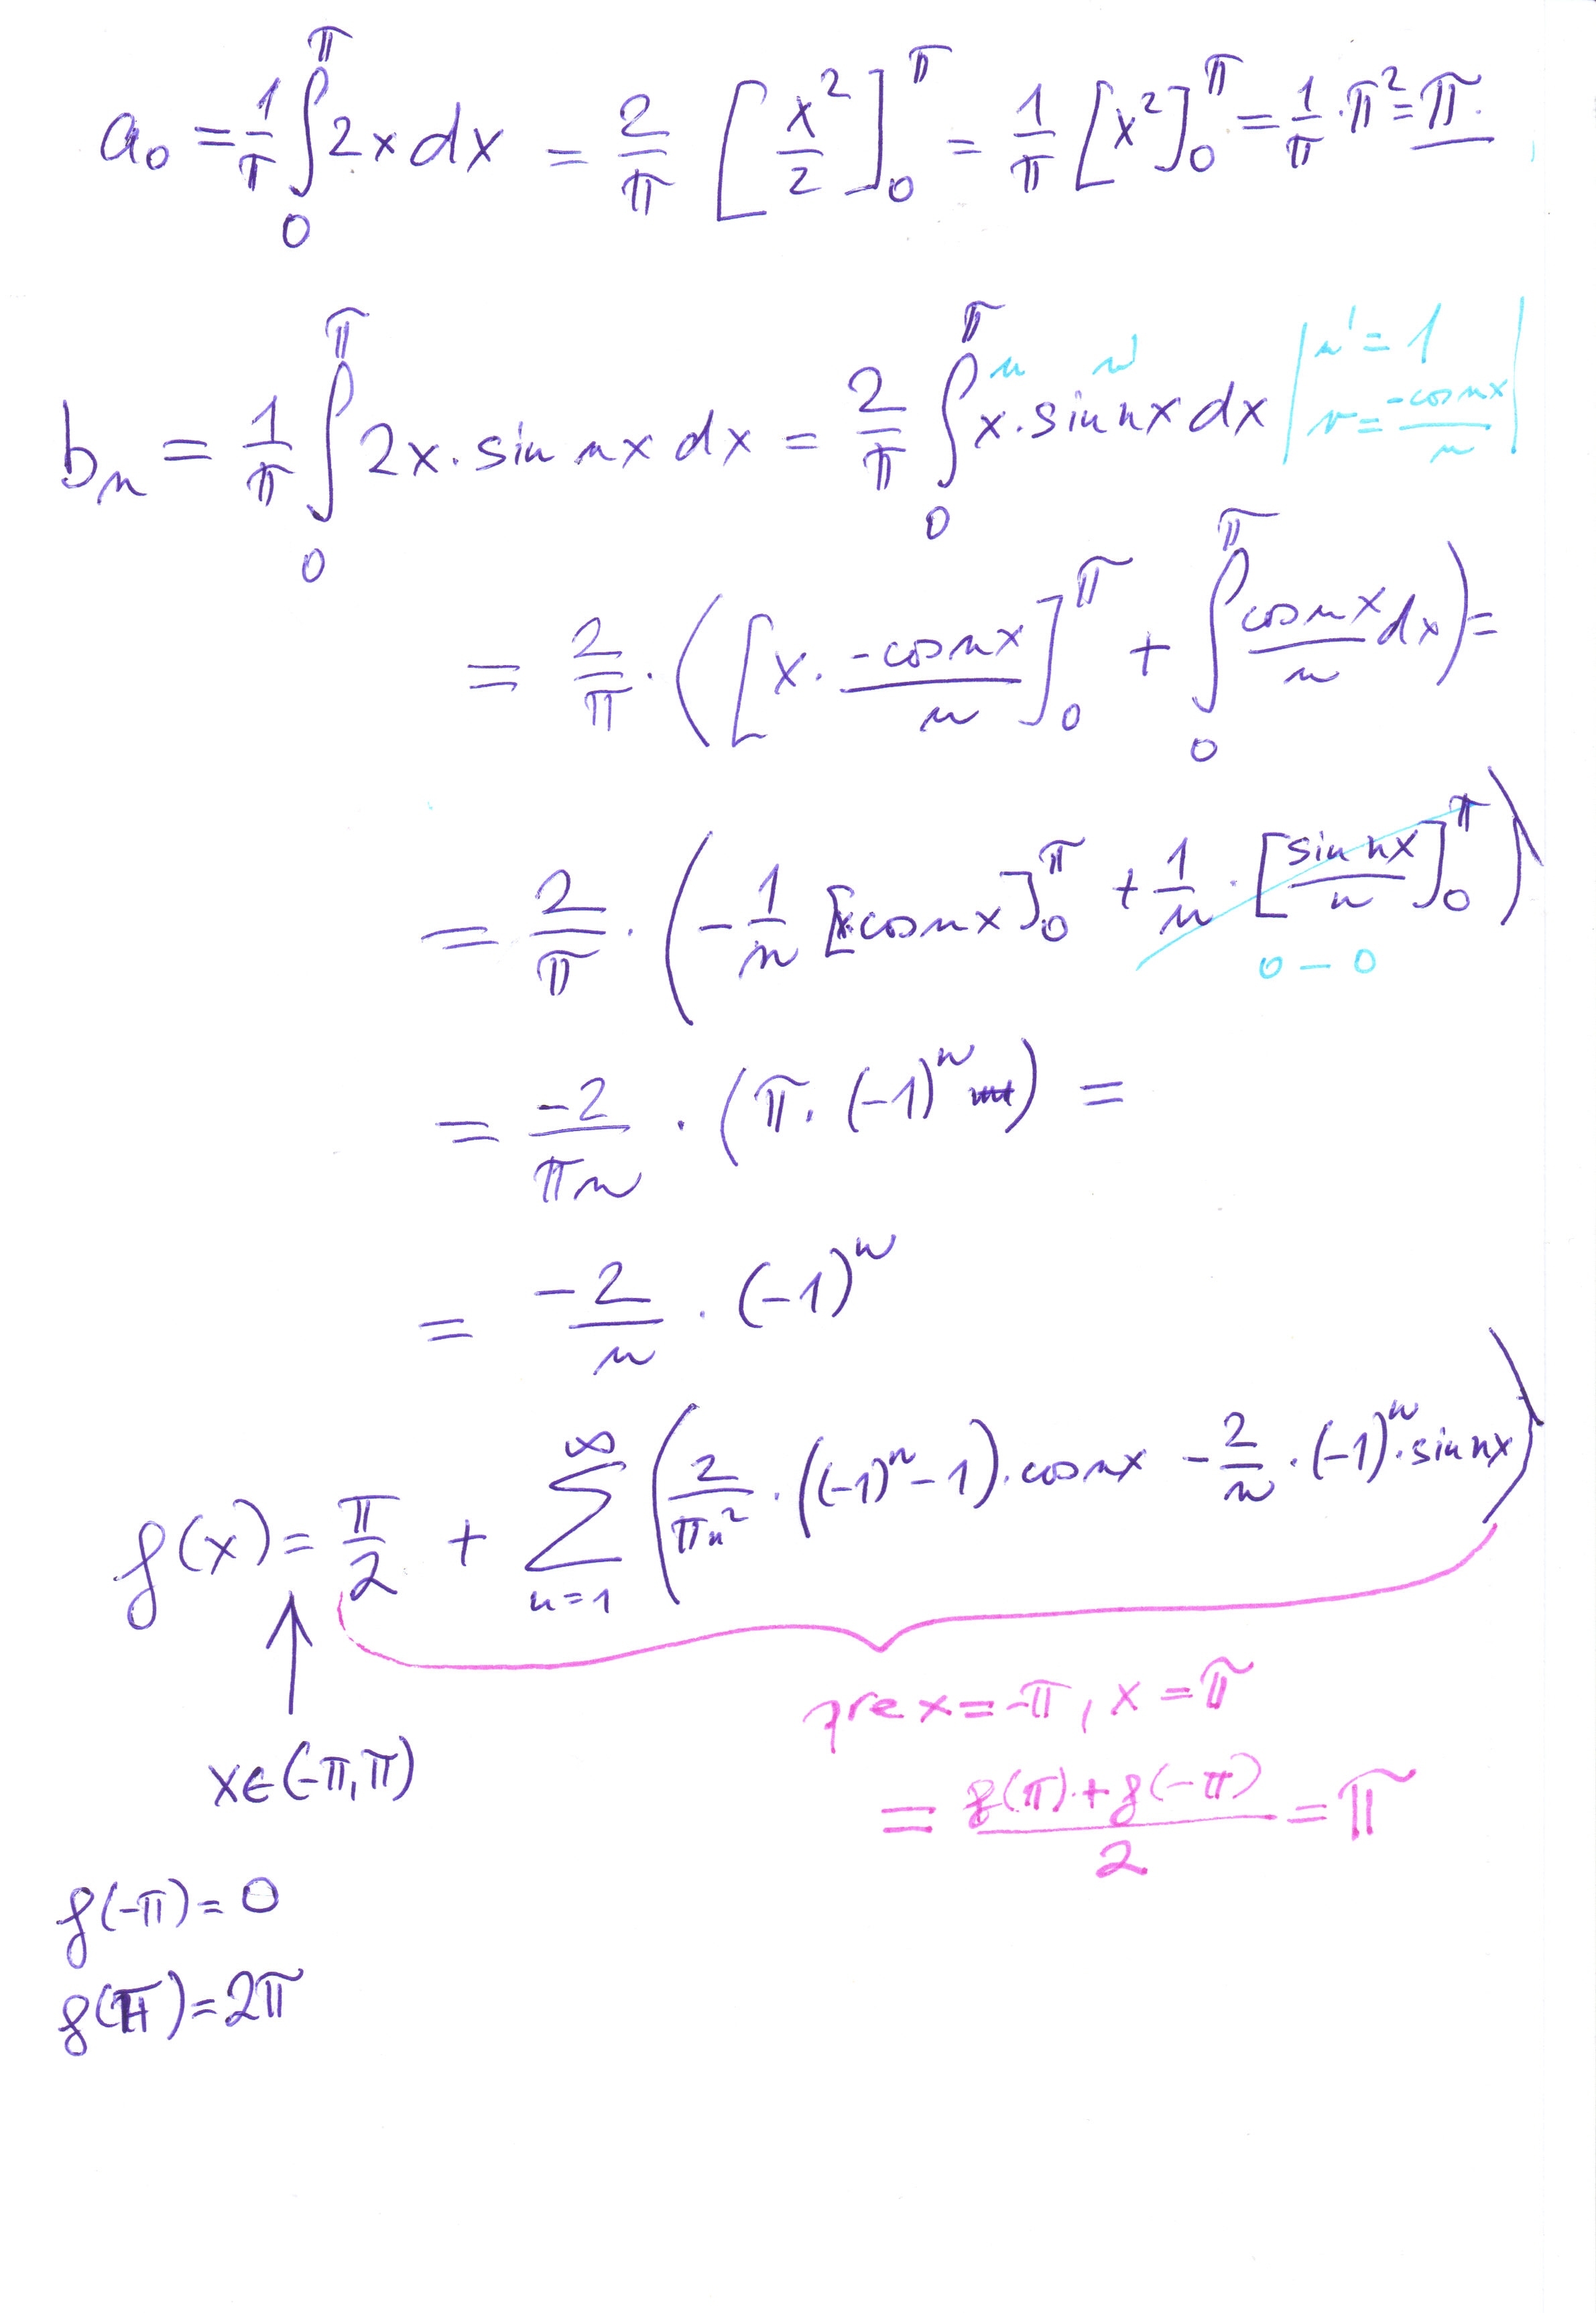 a₀ = 1/π ∫₀^π 2x dx = 2/π [x²/2]₀^π = 1/π [x²]₀^π = 1/π · π² = π.
bₙ = 1/π ∫₀^π 2x · sin nx dx = 2/π ∫₀^π x · sin nx dx | u' = 1
u v' v = -cos nx/n |
= 2/π · ([x · -cos nx/n]₀^π + ∫₀^π cos nx/n dx) =
= 2/π · (-1/n [x cos nx]₀^π + 1/n · [sin nx/n]₀^π)
0 - 0
= -2/πn · (π · (-1)ⁿ) =
= -2/n · (-1)ⁿ
f(x) = π/2 + ∑ₙ₌₁^∞ (2/πn² · ((-1)ⁿ - 1) · cos nx - 2/n · (-1)ⁿ · sin nx)
↑ pre x = -π, x = π
x∈(-π,π) = f(π) + f(-π)/2 = π
f(-π) = 0
f(π) = 2π